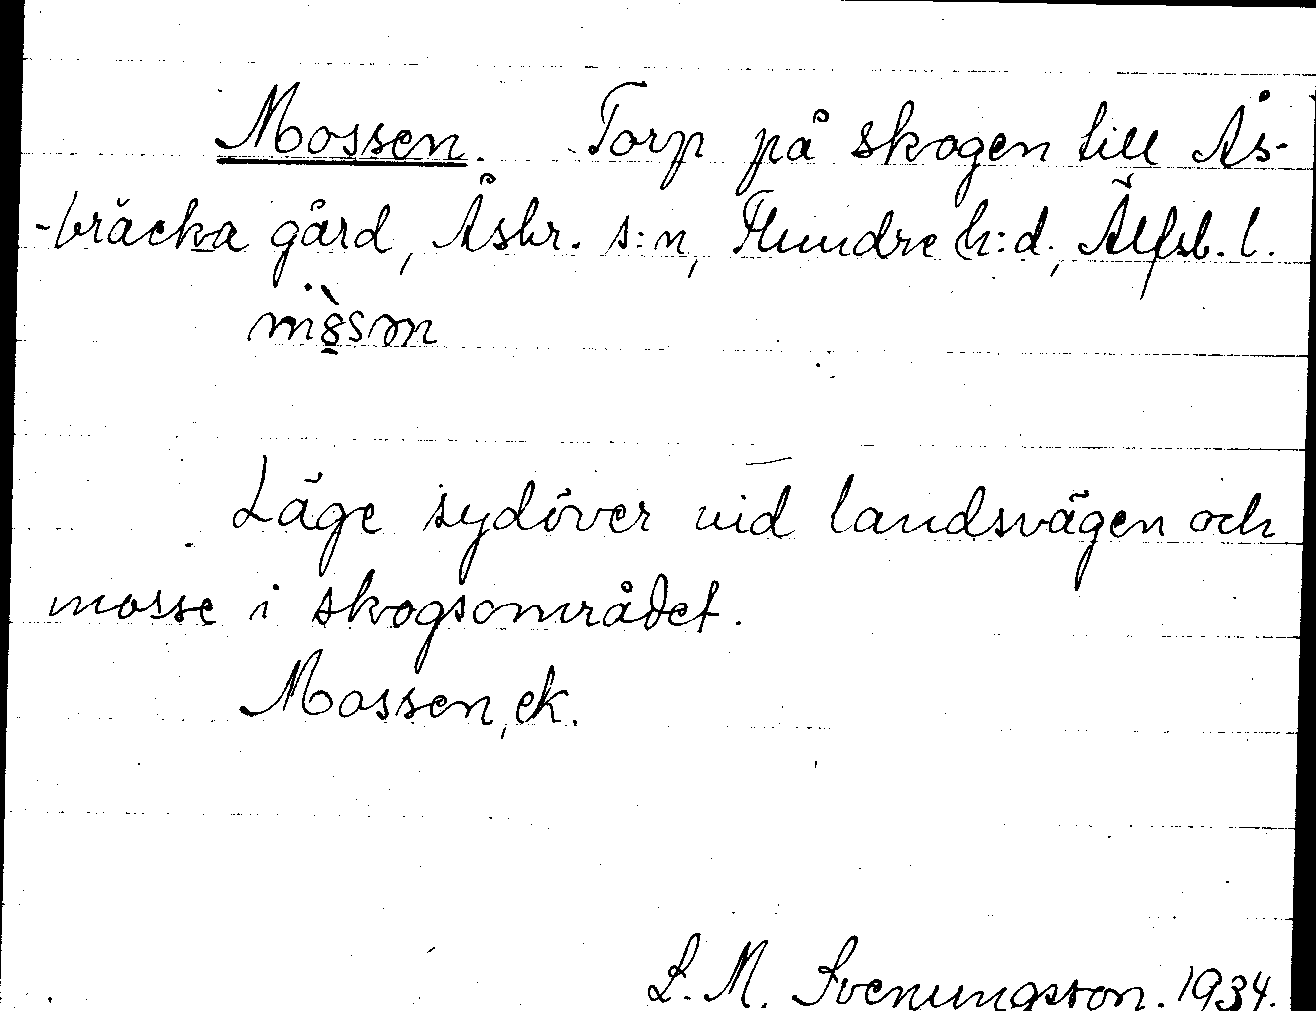 Mossen. Torp på skogen till Ås-
-bräcka gård, Åsbr. s:n, Flundre h:d., Älfsb. l.
Läge sydöver vid landsvägen och
mosse i skogsområdet.
Mossen, ek.
S. M. Svenungsson. 1934.